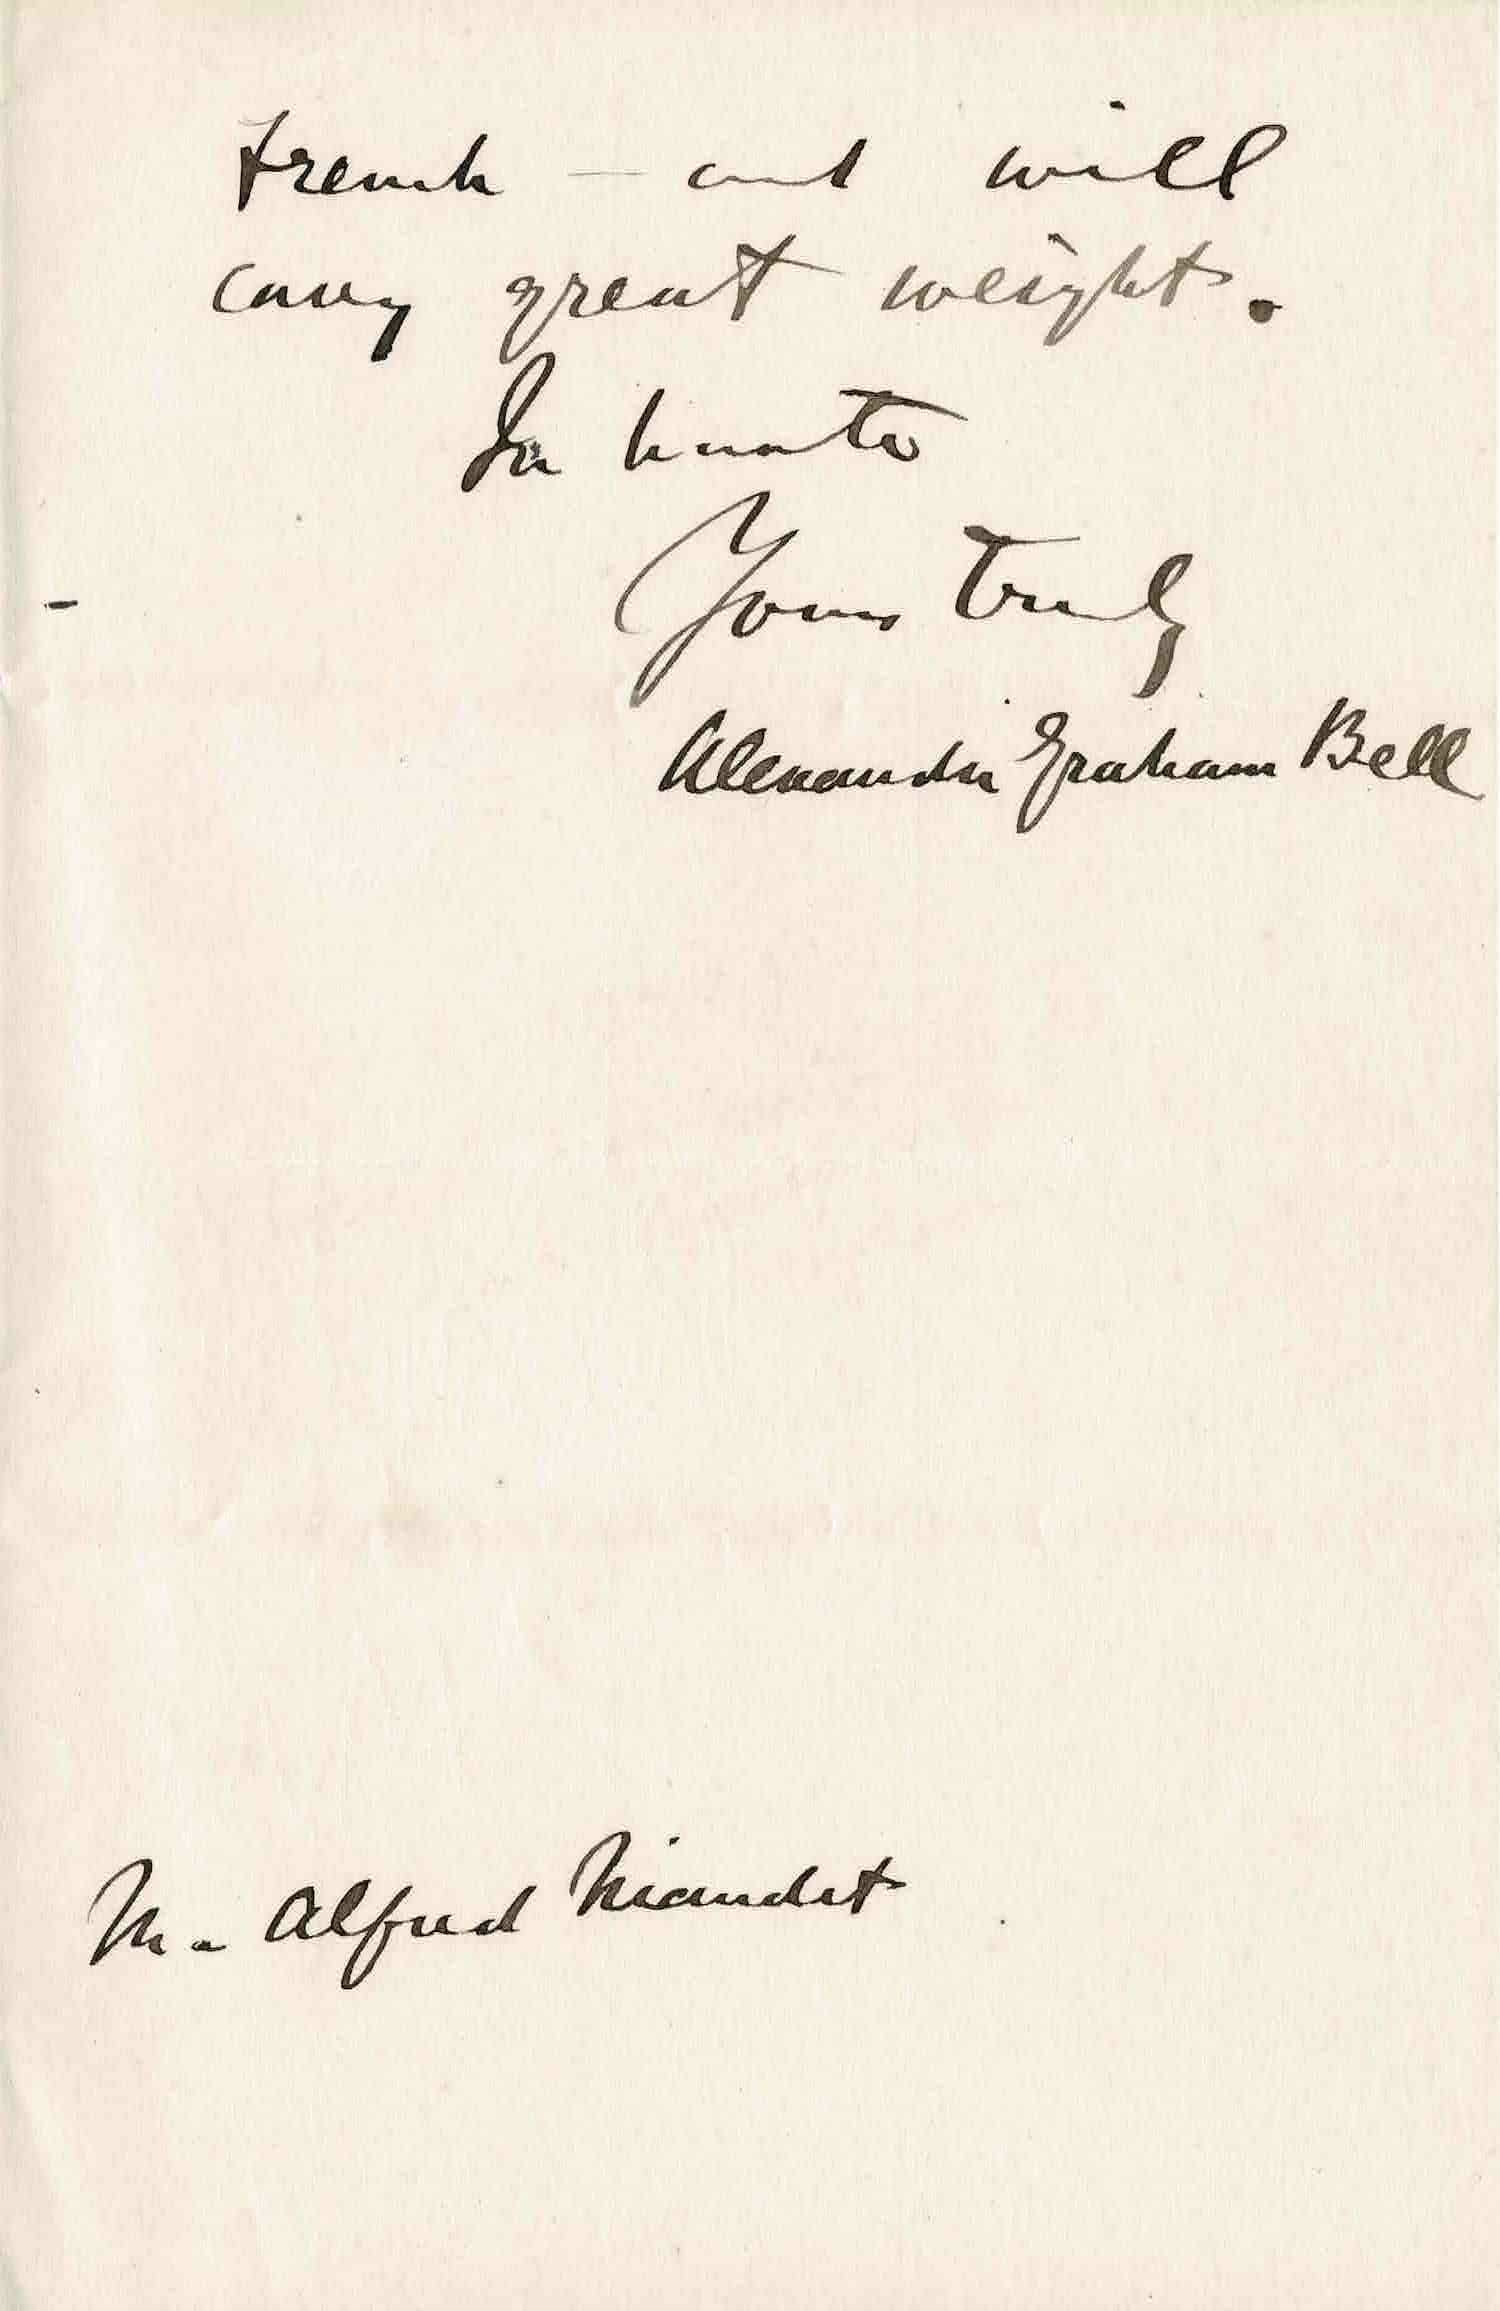 French – and will
carry great weight.
In haste
Yours truly
Alexander Graham Bell
M. Alfred Niaudet